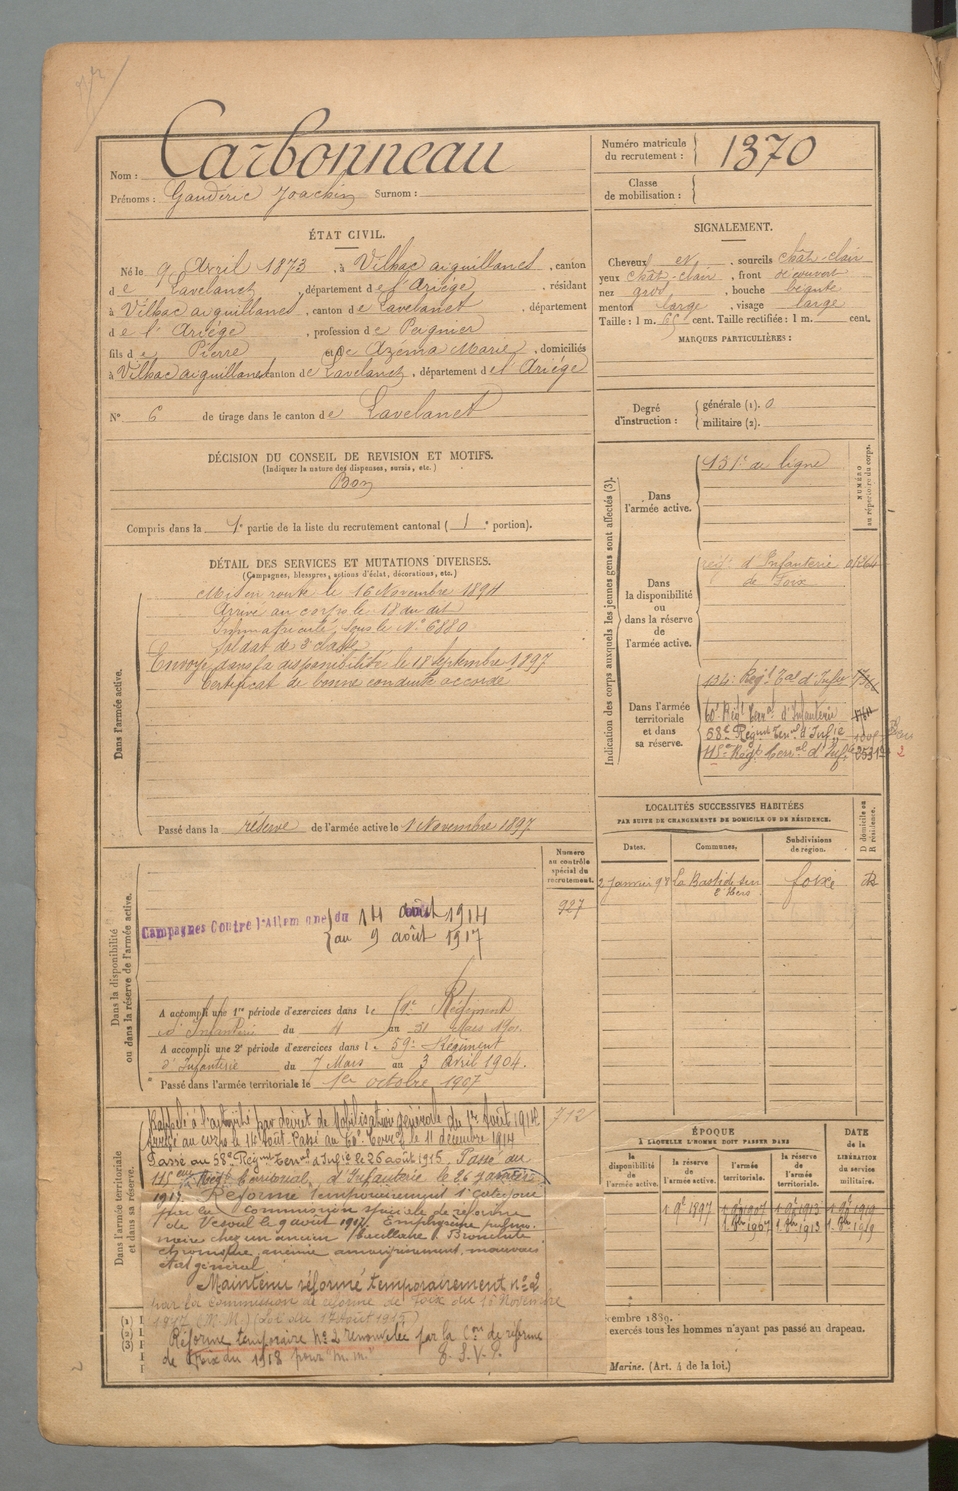 Nom : Carbonneau
Prénoms : Gaudéric Joachin Surnom :
Numéro matricule
du recrutement : 1370
Classe
de mobilisation :
ÉTAT CIVIL.
Né le 9 Avril 1873, à Vilhac aiguillanes, canton
de Lavelanet, département de l'Ariége, résidant
à Vilhac aiguillanes, canton de Lavelanet, département
de l'Ariége, profession de Peignier
fils de Pierre et de Azéma Marie, domiciliés
à Vilhac aiguillanes canton de Lavelanet, département de l'Ariége
N° 6 de tirage dans le canton de Lavelanet
SIGNALEMENT.
Cheveux et, sourcils chât-clair
yeux chât-clair, front découvert
nez gros, bouche béante
menton large, visage large
Taille : 1 m. 65 cent. Taille rectifiée : 1 m. cent.
MARQUES PARTICULIÈRES :
Degré
d'instruction :
générale (1). 0
militaire (2).
DÉCISION DU CONSEIL DE REVISION ET MOTIFS.
(Indiquer la nature des dispenses, sursis, etc.)
Bon
Compris dans la 1e partie de la liste du recrutement cantonal ( 1 .e portion).
DÉTAIL DES SERVICES ET MUTATIONS DIVERSES.
(Campagnes, blessures, actions d'éclat, décorations, etc.)
Dans l'armée active.
Mis en route le 16 Novembre 1894
Arrivé au corps le 18 du dit
Immatriculé, sous le N° 6880
Soldat de 2e classe
Envoyé dans la disponibilité le 18 septembre 1897
Certificat de bonne conduite accordé
Passé dans la réserve de l'armée active le 1 Novembre 1897
Indication des corps auxquels les jeunes gens sont affectés (3).
NUMÉRO
au répertoire du corps.
Dans
l'armée active.
131e de ligne
Dans
la disponibilité
ou
dans la réserve
de
l'armée active.
régt d'Infanterie
de Foix
Dans l'armée
territoriale
et dans
sa réserve.
134e Régt Tal d'Infie
60e Régt Terral d'Infanterie
58e Régiment Terral d'Infie
115e Régt Terral d'Infie
2
LOCALITÉS SUCCESSIVES HABITÉES
PAR SUITE DE CHANGEMENTS DE DOMICILE OU DE RÉSIDENCE.
Dates. Communes. Subdivisions
de région.
D domicile ou
R résidence.
2 Janvier 98 La Bastide sur
l'Hers foix R
Dans la disponibilité
ou dans la réserve de l'armée active.
Numéro
au contrôle
spécial du
recrutement.
927
Campagnes Contre l'Allemagne du 14 août 1914
au 9 août 1917
A accompli une 1re période d'exercices dans le Régiment
d'Infanterie du 4 au 31 Mars 1901.
A accompli une 2e période d'exercices dans le 59e Régiment
d'Infanterie du 7 Mars au 3 avril 1904.
Passé dans l'armée territoriale le 1er octobre 1907
Dans l'armée territoriale
et dans sa réserve.
712
Rappelé à l'activité par décret de Mobilisation générale du 1er Août 1914
Arrivé au corps le 14 août. Passé au 60e Terral le 11 décembre 1914
Passé au 58e Régiment Terral d'Infie le 26 août 1915. Passé au
115eme Régt Territorial d'Infanterie le 26 janvier
1917. Réformé temporairement 1e catégorie
par la Commission spéciale de réforme
de Vesoul le 9 août 1917. Emphysème pulmo-
naire chez un ancien bacillaire. Bronchite
chronique, anémie, amaigrissement, mauvais
état général
Maintenu réformé temporairement n° 2
par la commission de réforme de Foix du 15 Novembre
1917 (M.M.) (Loi du 17 août 1917)
Réforme temporaire N° 2 renouvelée par la Con de réforme
de Foix du 1918 pour "m.m." T.S.V.P.
ÉPOQUE
À LAQUELLE L'HOMME DOIT PASSER DANS
DATE
de la
LIBÉRATION
du service
militaire.
la
disponibilité
de
l'armée active.
la réserve
de
l'armée active.
l'armée
territoriale.
la réserve
de l'armée
territoriale.
1 9bre 1897 1 9bre 1907 1 9bre 1913 1 9bre 1919
1. 8bre 1907 1. 8bre 1913 1. 8bre 1919
(1)
(2)
(3)
cembre 1889.
exercés tous les hommes n'ayant pas passé au drapeau.
Marine. (Art. 4 de la loi.)